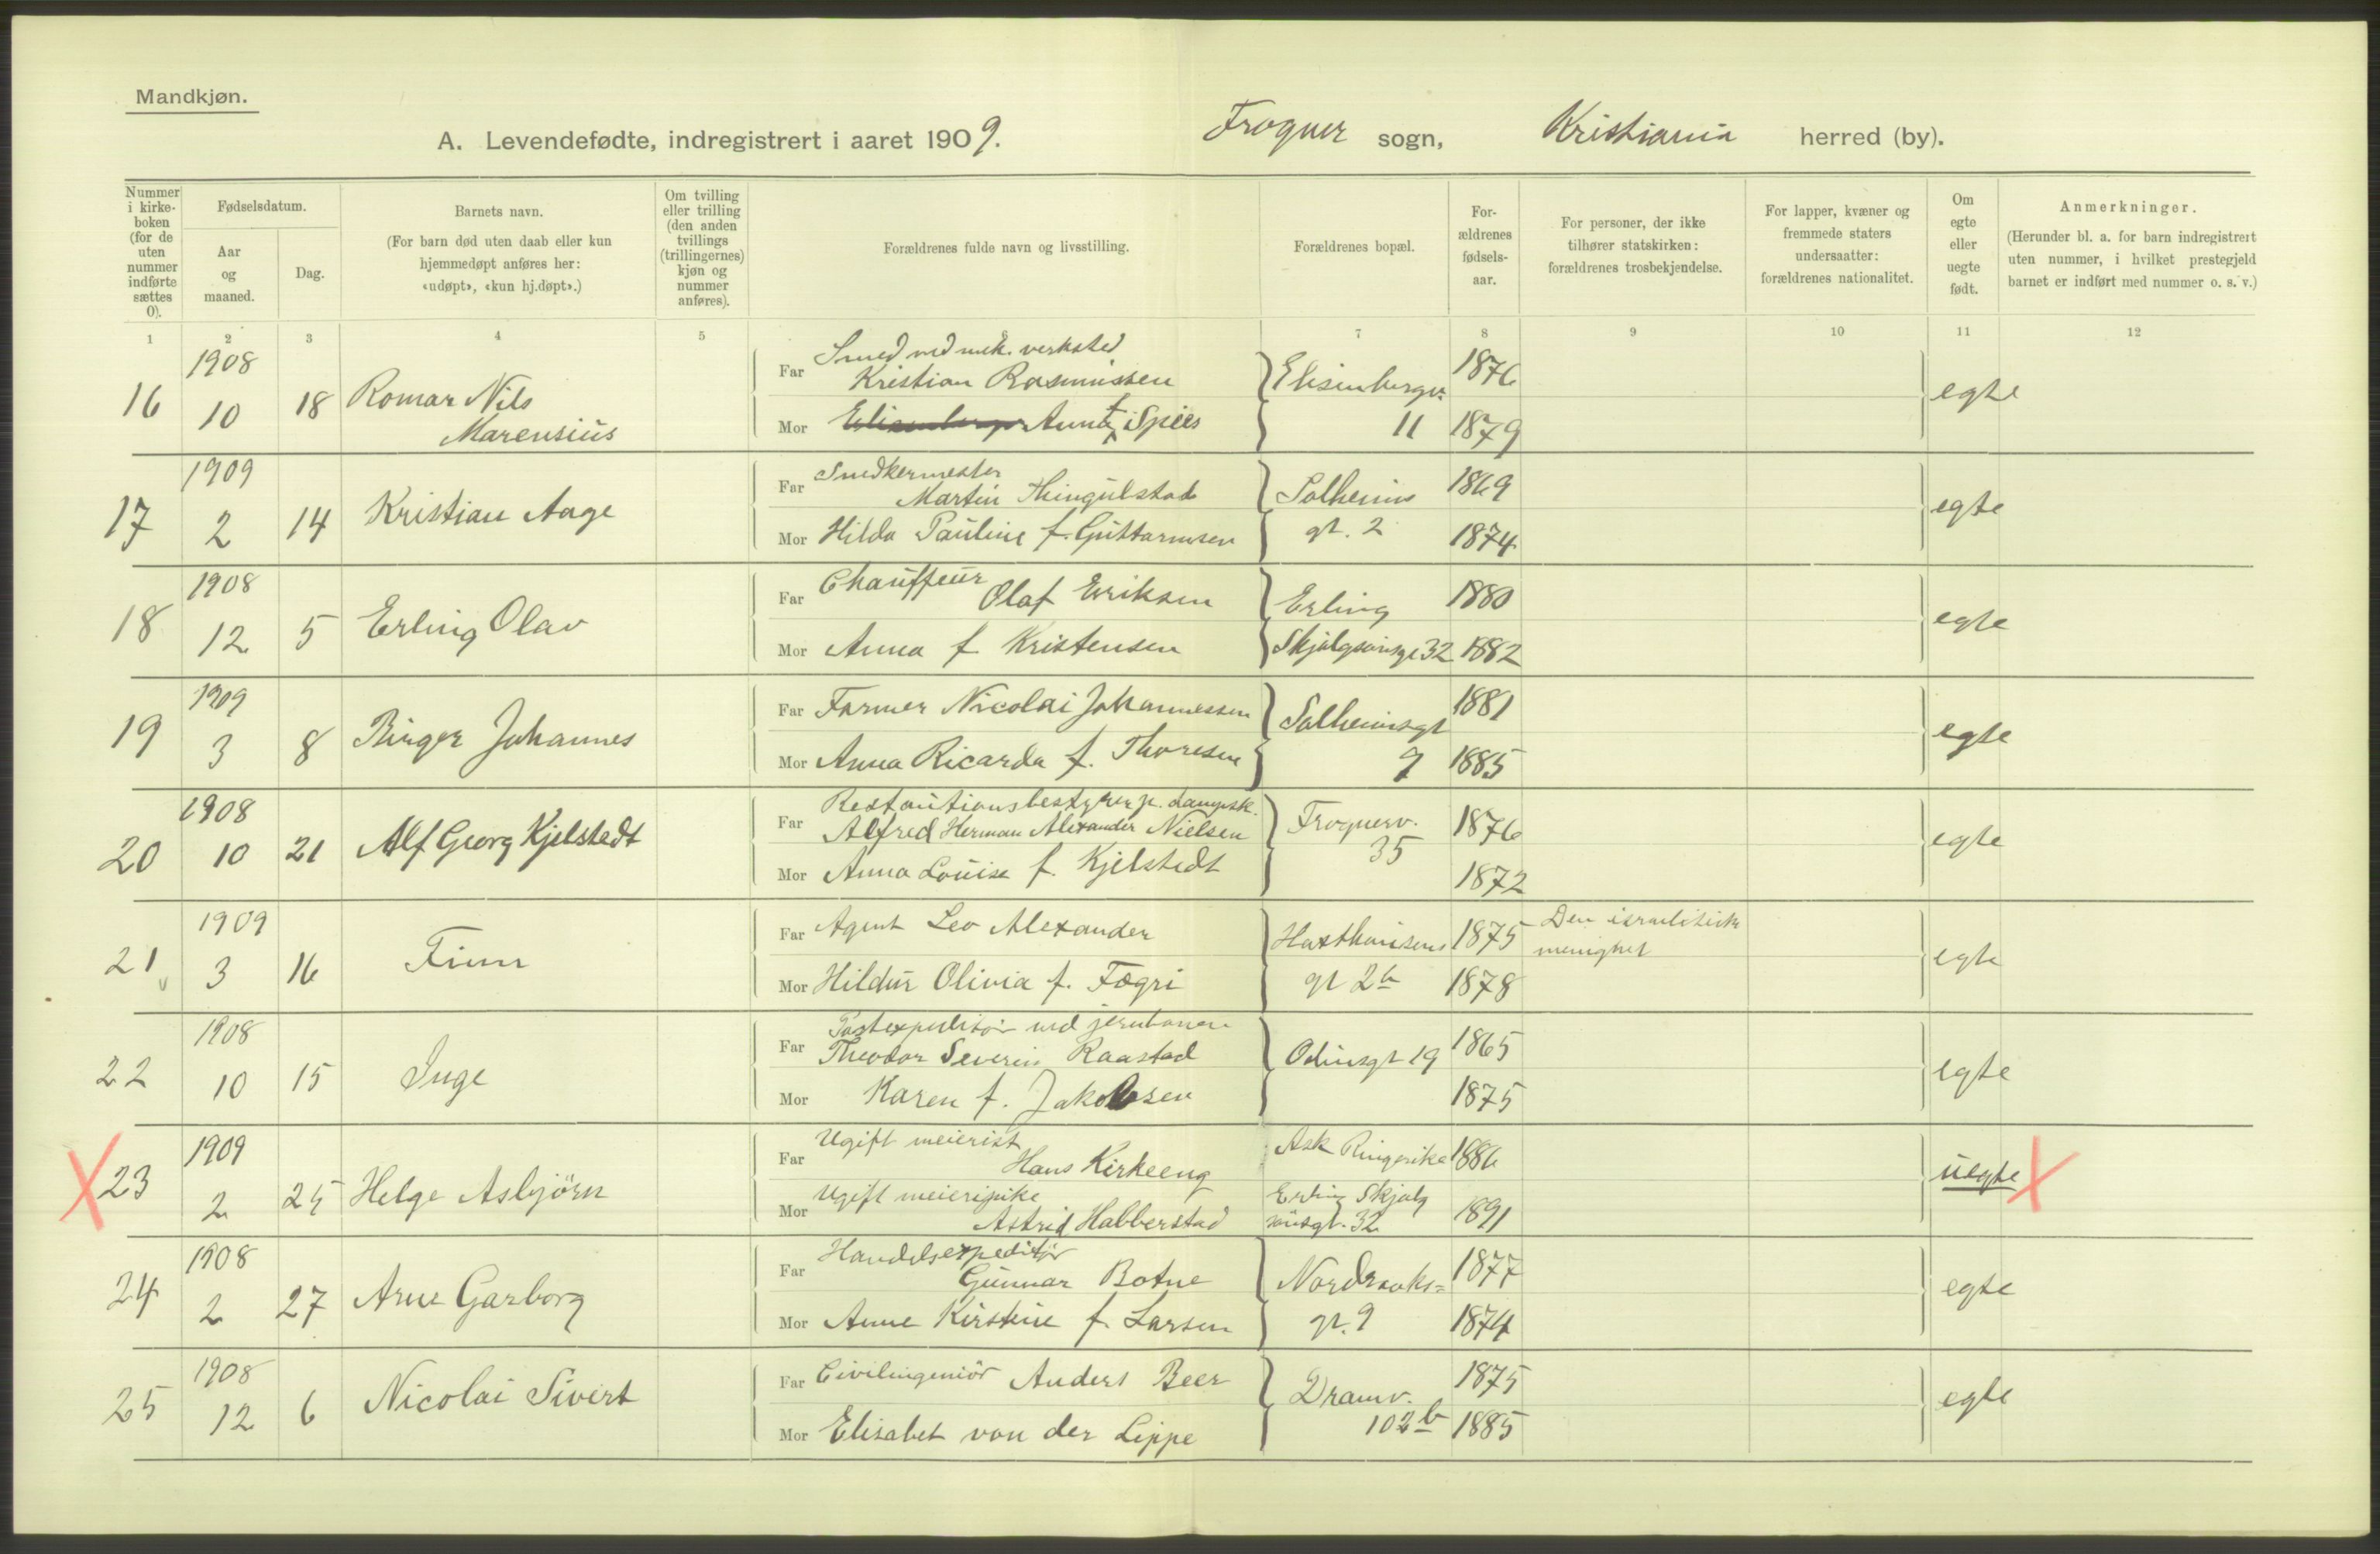 Mandkjøn.
A. Levendefødte, indregistrert i aaret 1909. Frogner sogn, Kristiania herred (by).
Nummer i kirke-boken (for de uten nummer indførte sættes 0).
Fødselsdatum.
Aar og maaned.
Dag.
Barnets navn.
(For barn død uten daab eller kun hjemmedøpt anføres her: «udøpt», «kun hj.døpt».)
Om tvilling eller trilling (den anden tvillings (trillingernes) kjøn og nummer anføres).
Forældrenes fulde navn og livsstilling.
Forældrenes bopæl.
For-ældrenes fødsels-aar.
For personer, der ikke tilhører statskirken: forældrenes trosbekjendelse.
For lapper, kvæner og fremmede staters undersaatter: forældrenes nationalitet.
Om egte eller uegte født.
Anmerkninger.
(Herunder bl. a. for barn indregistrert uten nummer, i hvilket prestegjeld barnet er indført med nummer o. s. v.)
1 2 3 4 5 6 7 8 9 10 11 12
16 1908 10 18 Romar Nils Marensius
Far Smed ved mek. verksted
Kristian Rasmussen Elisenbergv. 1876
Mor Anna f. Spies 11 1879 egte
17 1909 2 14 Kristian Aage
Far Snedkermester
Martin Thingulstad Solheims 1869
Mor Hilda Pauline f. Gustavnsen gt. 2 1874 egte
18 1908 12 5 Erling Olav
Far Chauffeur Olaf Eriksen Erling 1880
Mor Anna f Kristensen Skjalgsønsgt 32 1882 egte
19 1909 3 8 Birger Johannes
Far Farmer Nicolai Johannessen Solheimsgt 1881
Mor Anna Ricarda f. Thoresen 9 1885 egte
20 1908 10 21 Alf Georg Kjelstedt
Far Restautionsbestyrer p. dampsk.
Alfred Herman Alexander Nielsen Frognerv. 35 1876
Mor Anna Louise f. Kjelstedt 1872 egte
21 1909 3 16 Finn
Far Agent Leo Alexander Haxthausens 1875 Den israelitiske menighet
Mor Hildur Olivia f. Fægri gt 2b 1878 egte
22 1908 10 15 Inge
Far Postexpeditør ved jernbanen
Theodor Severin Raastad Odinsgt 19 1865
Mor Karen f. Jakobsen 1875 egte
23 1909 2 25 Helge Asbjörn
Far Ugift meierist
Hans Kirkeeng Ask Ringerike 1886
Mor Ugift meieripike
Astrid Habberstad Erling Skjalg sönsgt. 32 1891 uegte
24 1908 2 27 Arne Garborg
Far Handelsexpeditør
Gunnar Botne Nordraaks= 1877
Mor Anne Kirstine f. Larsen gt. 9 1874 egte
25 1908 12 6 Nicolai Sivert
Far Civilingeniör Anders Beer Dramv. 1875
Mor Elisabet von der Lippe 102b 1885 egte